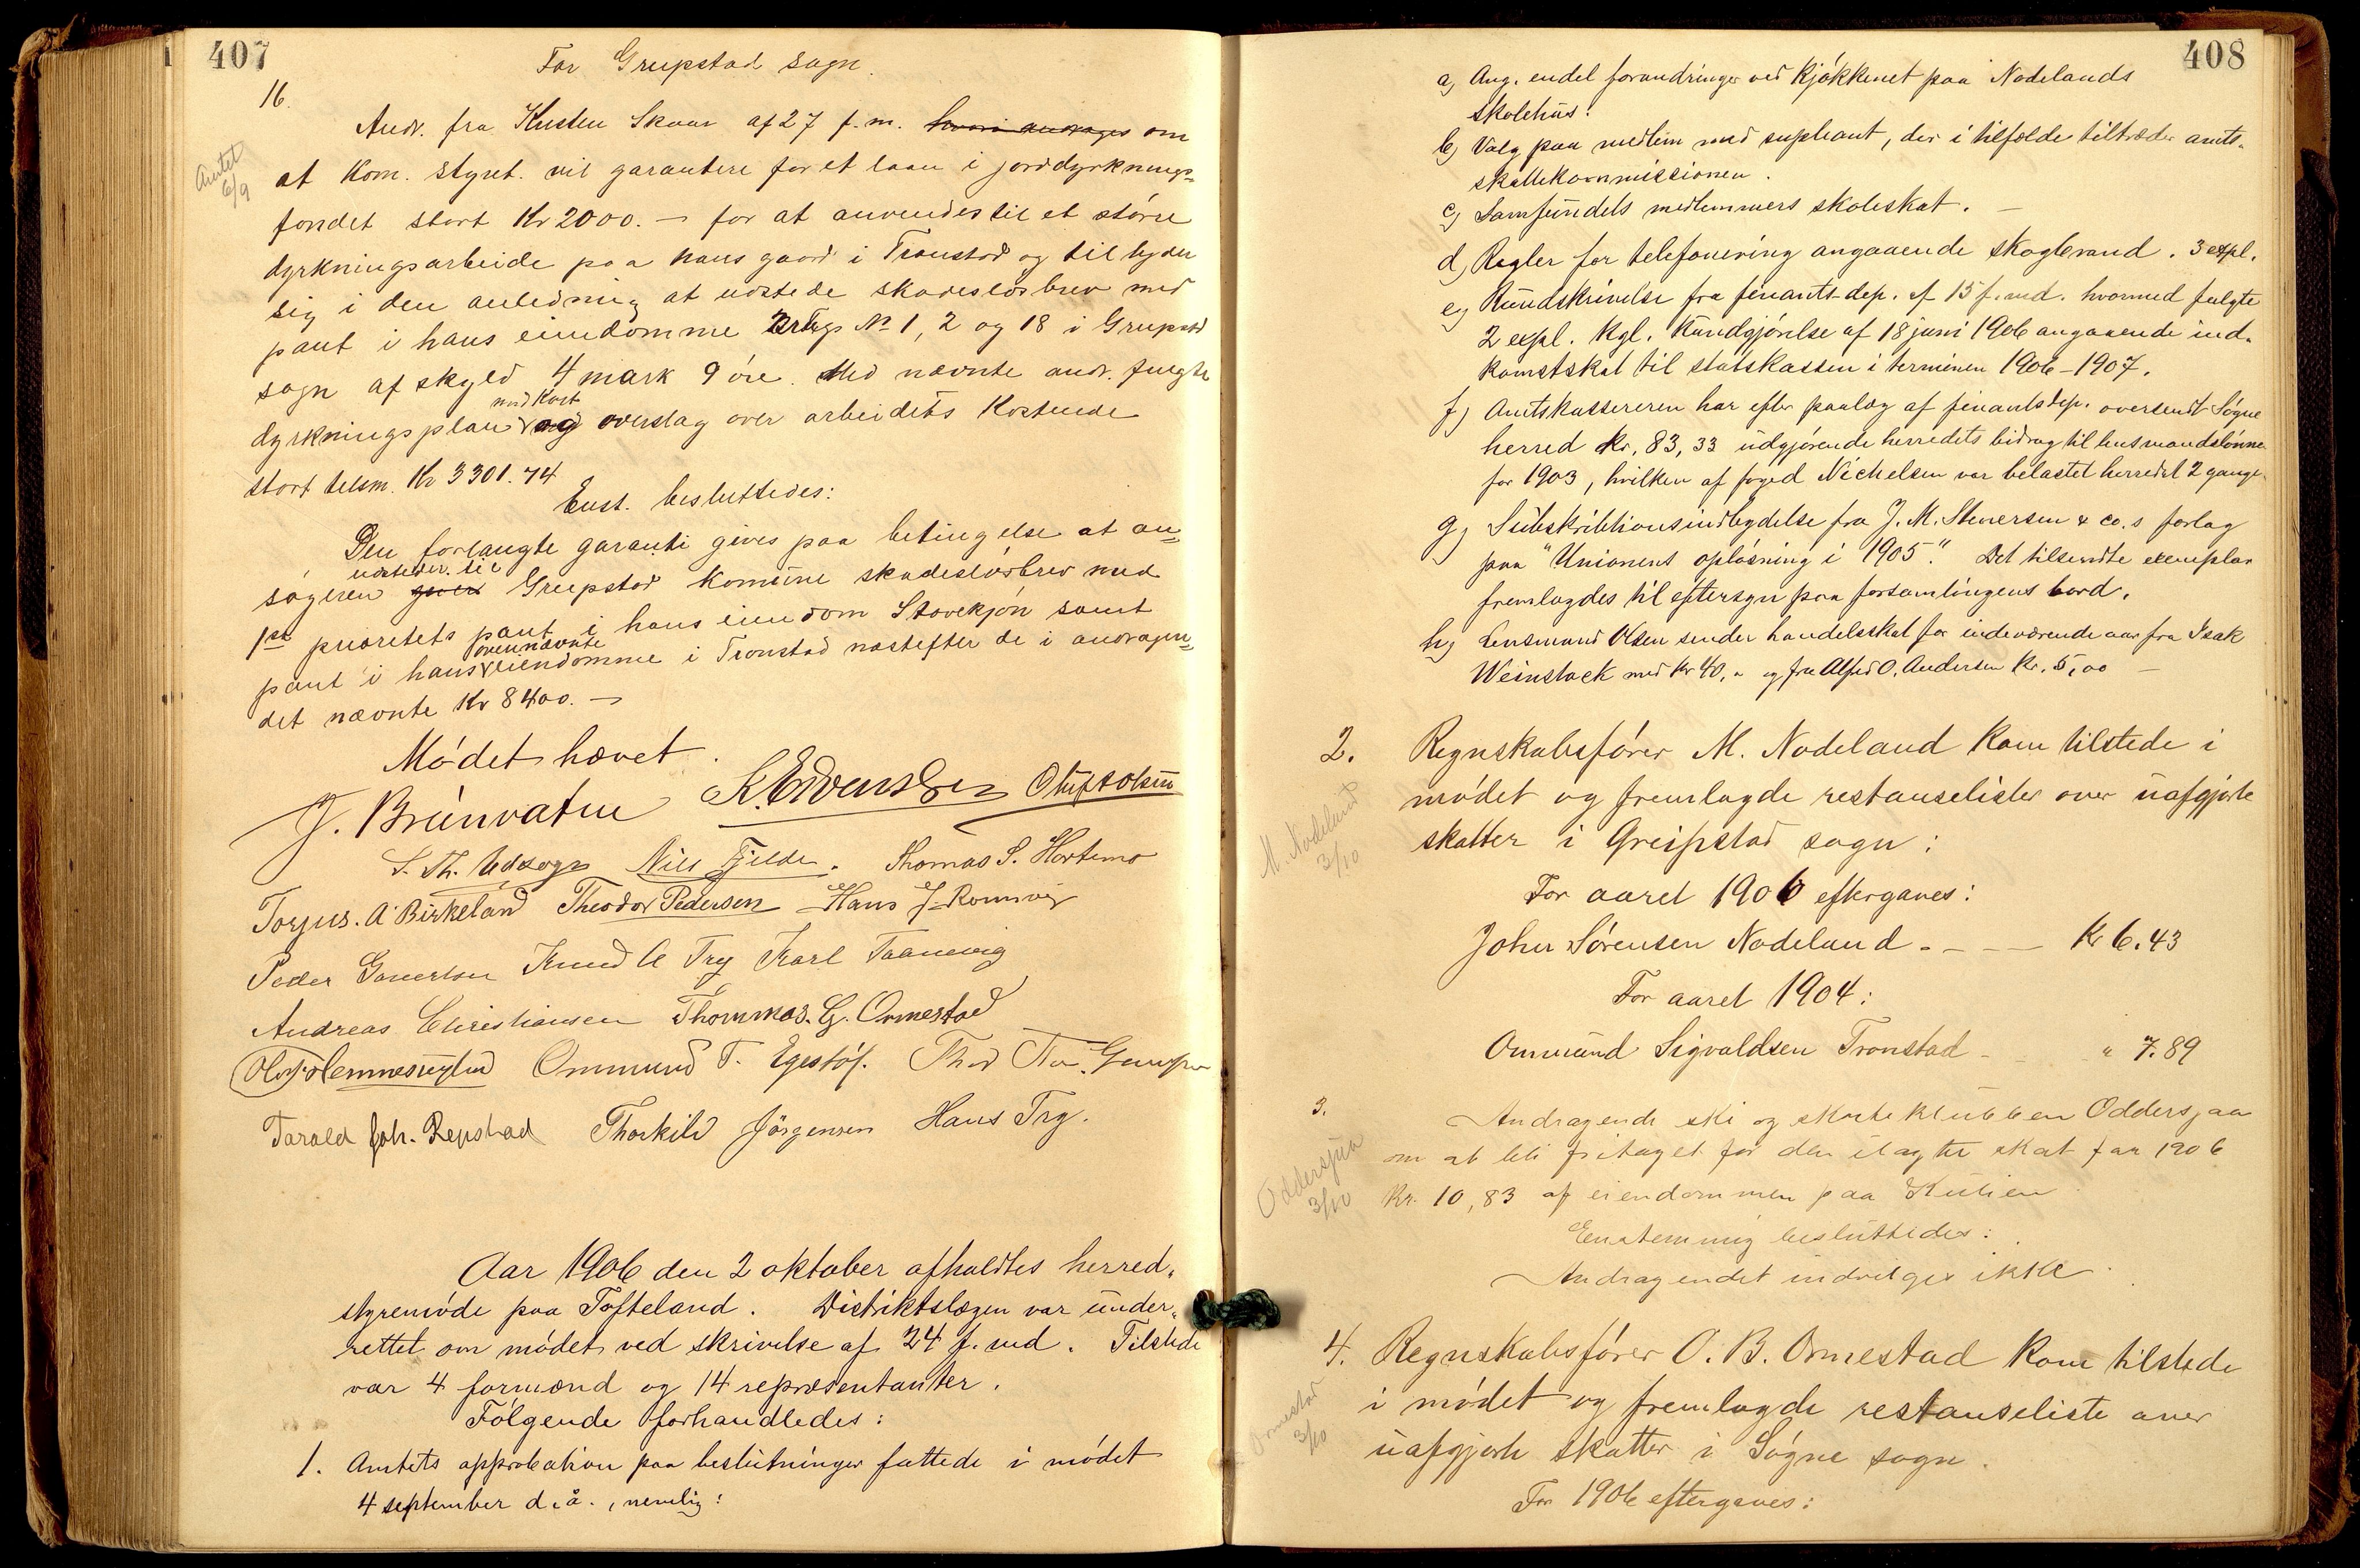 407
For Greipstad sogn.
16.
Andr. fra Kristen Skaar af 27 f.m. hvori andrages om
Amtet
6/9
at Kom. styret. vil garantere for et laan i jorddyrknings-
fondet stort Kr 2000. — for at anvendes til et større
dyrkningsarbeide paa hans gaard i Tronstad og tilbyder
sig i den anledning at udstede skadesløsbrev med
pant i hans eiendomme Brugs No 1, 2 og 18 i Greipstad
sogn af skyld 4 mark 9 øre. Med nævnte andr. fulgte
med Kost
dyrkningsplan og overslag over arbeidets Kostende
stort tilsm. Kr 3301.74
Enst. besluttedes:
Den forlangte garanti gives paa betingelse at an-
udsteder til
søgeren giver Greipstad Komune skadesløsbrev med
1ste prioritets pant i hans eiendom Stavekjøn samt
ovennævnte
pant i hans eiendomme i Tronstad næstefter de i andragen-
det nævnte Kr 8400. —
Mødet hævet.
J. Brunvatne K. Edvardsen Oluf Olsen
S. Th. Udsogn Nils Fjelde. Thomas S. Hortemo
Torjus. A. Birkeland Theodor Pedersen Hans J. Romsvig
Peder Knud A Try Karl Taanevig
Andreas Christiansen Thommas. G. Ormestad
Ommund T. Egestøl.
Tarald Joh. Repstad Thorkild Jörgensen Hans Try.
Aar 1906 den 2 oktober afholdtes herred-
styremøde paa Tofteland. Distriktslægen var under-
rettet om mødet ved skrivelse af 24 f. md. Tilstede
var 4 formænd og 14 repræsentanter.
Følgende forhandledes:
1. Amtets approbation paa beslutninger fattede i mødet
4 september d. å., nemlig:
408
a) Ang. endel forandringer ved Kjøkkenet paa Nodelands
skolehus.
b) Valg paa medlem med supleant, der i tilfælde tiltræder amts-
skattekommissionen.
c) Samfundets medlemmers skoleskat. —
d) Regler for telefonering angaaende skogbrand. 3 expl.
e) Rundskrivelse fra finants-dep. af 15 f. md. hvormed fulgte
2 expl. Kgl. Kundgjørelse af 18 juni 1906 angaaende ind-
komstskat til statskassen i terminen 1906–1907.
f) Amtskassereren har efter paalæg af finantsdep. oversendt Søgne
herred Kr. 83,33 udgjørende herredets bidrag til lensmandslønnen
for 1903, hvilken af foged Nichelsen var belastet herredet 2 gange.
g) Subskribtionsindbydelse fra J. M. Stenersen & co.s forlag
paa "Unionens opløsning i 1905." Det tilsendte exemplar
fremlagdes til eftersyn paa forsamlingens bord.
h) Lensmand Olsen sender handelsskat for indeværende aar fra Isak
Weinstock med Kr 40, " og fra Alfred O. Andersen Kr. 5,00 —
2. Regnskabsfører M. Nodeland Kom tilstede i
M. Nodeland
3/10
mødet og fremlagde restanselister over uafgjorte
skatter i Greipstad sogn:
For aaret 1906 eftergaves:
John Sørensen Nodeland - - - — Kr 6.43
For aaret 1904:
Ommund Sigvaldsen Tronstad - - " 7.89
3.
Andragende ski og skøiteklubben Oddersjaa
Oddersjaa
3/10
om at bli fritaget for den ilagte skat for 1906
Kr. 10,83 af eiendommen paa Kulien
Enstemmig besluttedes:
Andragendet indvilges ikke.
4. Regnskabsfører O. B. Ormestad Kom tilstede
Ormestad
3/10
i mødet og fremlagde restanseliste over
uafgjorte skatter i Søgne sogn.
For 1906 eftergaves: